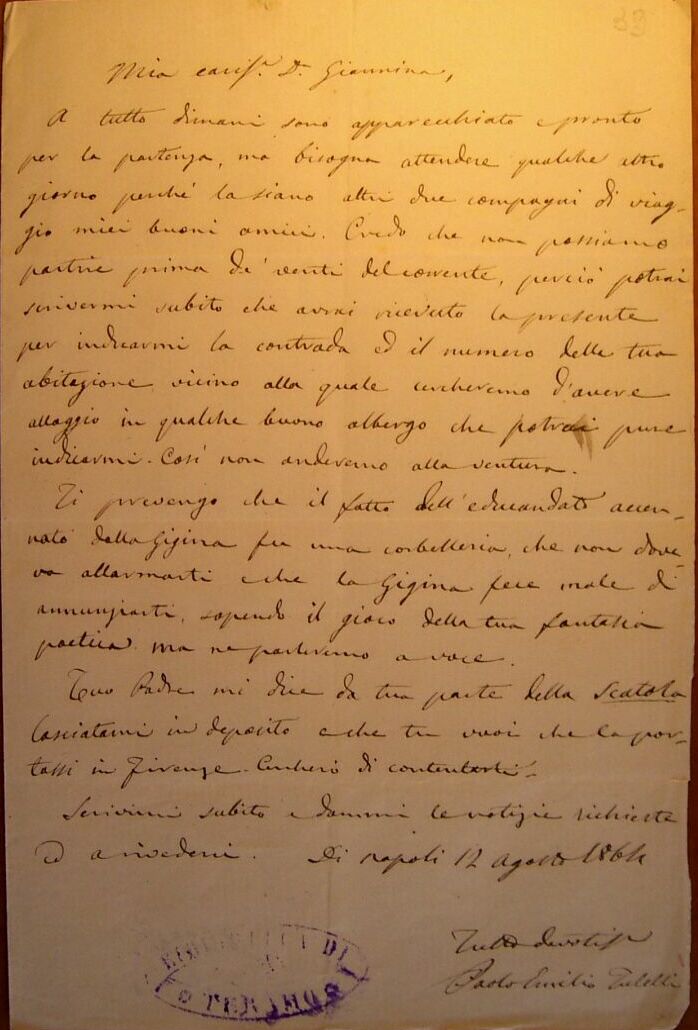 33
Mia cariss. D. Giannina,
A tutto dimani sono apparecchiato e pronto
per la partenza, ma bisogna attendere qualche altro
giorno perché lasciano altri due compagni di viag-
gio miei buoni amici. Credo che non possiamo
partire prima de' venti del corrente, perciò potrai
scrivermi subito che avrai ricevuto la presente
per indicarmi la contrada ed il numero della tua
abitazione vicino alla quale cercheremo d'avere
alloggio in qualche buono albergo che potrai pure
indicarmi. Così non anderemo alla ventura.
Ti prevengo che il fatto dell'educandato accen-
nato dalla Gigina fu una corbelleria, che non dove-
va allarmarti e che la Gigina fece male di
annunziarti, sapendo il gioco della tua fantasia
poetica. ma ne parleremo a voce.
Tuo Padre mi dice da tua parte della Scatola
lasciatami in deposito e che tu vuoi che la por-
tassi in Firenze. Cercherò di contentarti.
Scrivimi subito e dammi le notizie richieste
ed a rivederci. Di Napoli 12 agosto 1864
Tutto devotiss.
Paolo Emilio
BIBLIOTECA DI
TERAMO